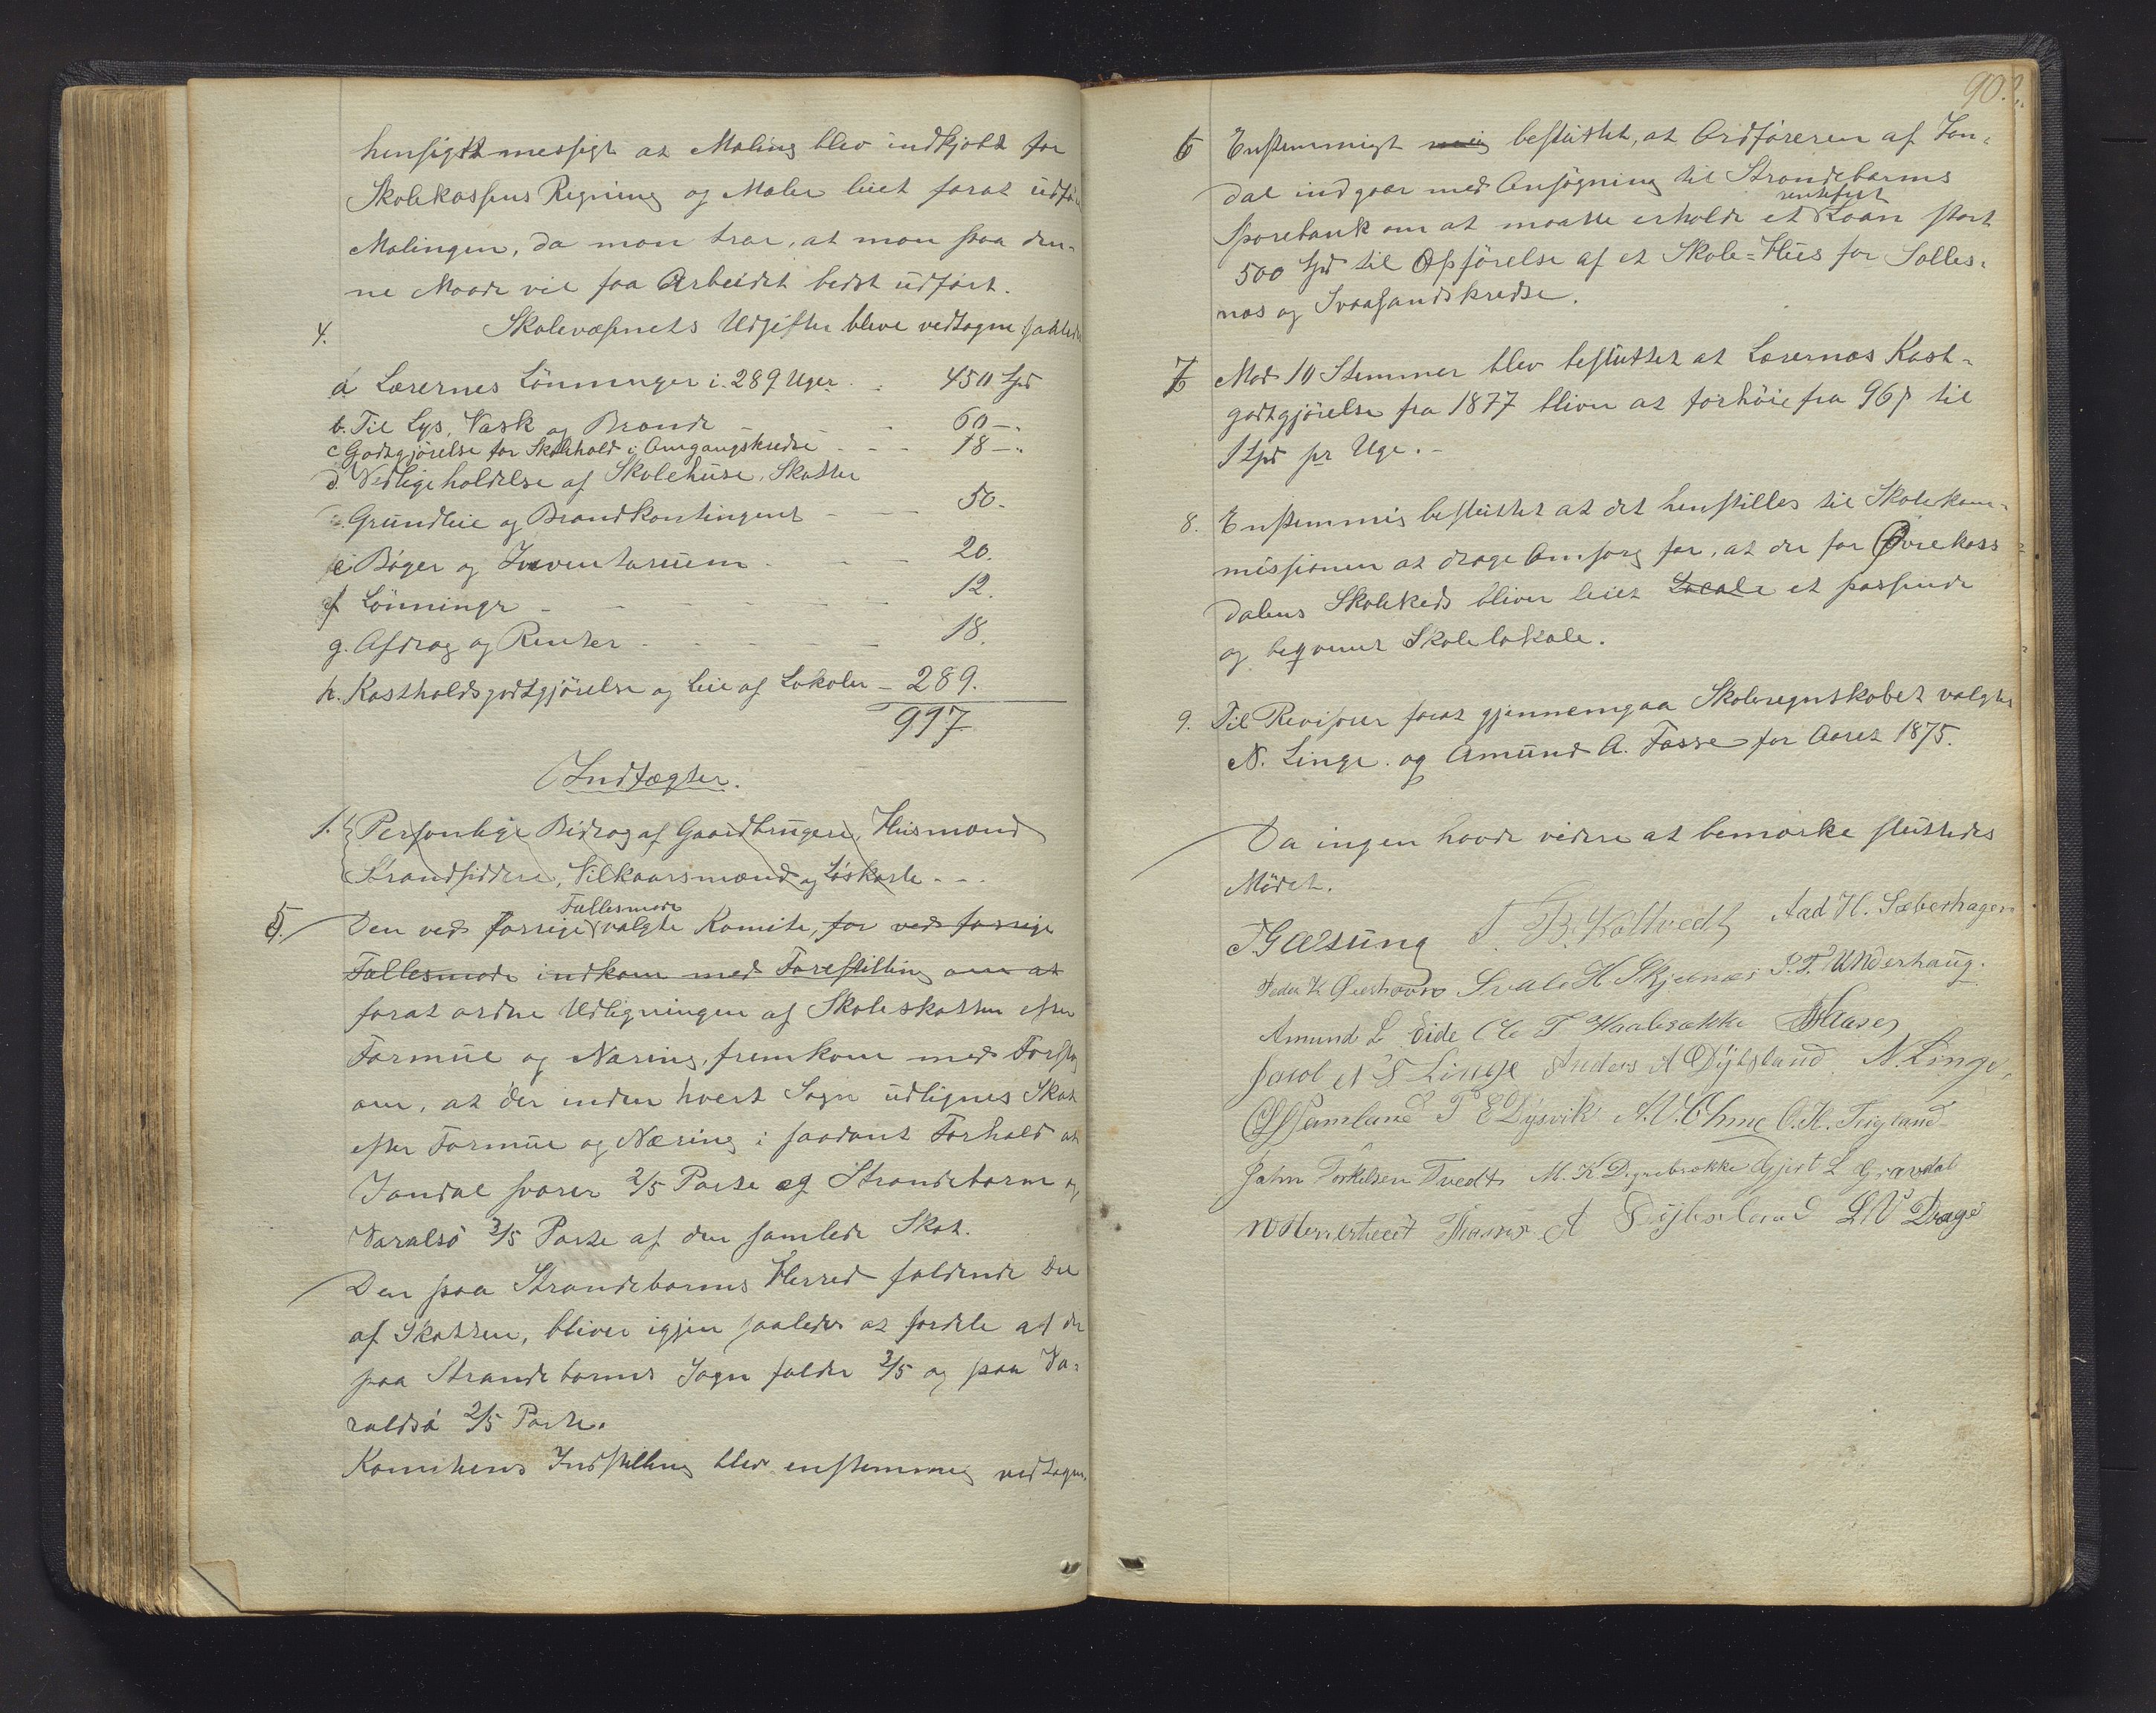 hensigtsmessigt at Maling blev indkjøbt for
Skolekassens Regning og Maler leiet forat udføre
Malingen, da man tror, at man paa den-
ne Maade vil faa Arbeidet bedst udført.
4. Skolevæsnets Udgifter bleve vedtagne saaledes
a Lærernes Lönninger i 289 Uger 450 Spd
b. Til Lys, Vask og Brænde 60 —
c Godtgjörelse for Skolehold i Omgangskredse 18 —
d. Vedligeholdelse af Skolehuse, Skatter
Grundleie og Brandkontingent 50.
e Bøger og Inventarium 20.
f Lönninger 12.
g. Afdrag og Renter 18.
h. Kostholdsgodtgjörelse og Leie af Lokaler 289.
917
Indtægter.
1. Personlige Bidrag af Gaardbrugere, Husmænd
Strandsiddere, Vilkaarsmænd og Løskarle
5. Den ved forrige Fællesmøde valgte Komite, for ved forrige
Fællesmøde indkom med Forestilling om at
forat ordne Udligningen af Skoleskatten efter
Formue og Næring, fremkom med Forslag
om, at der inden hvert Sogn udlignes Skat
efter Formue og Næring i saadant Forhold at
Jondal svarer 2/5 Parte og Strandebarm og
Varalsö 3/5 Parte af den samlede Skat.
Den paa Strandebarms Herred faldende Del
af Skatten, bliver igjen saaledes at fordele at der
paa Strandebarms Sogn falder 3/5 og paa Va-
raldsö 2/5 Parte.
Komiteens Indstilling blev enstemmig vedtagen.
90.
6 Enstemmigt besluttet, at Ordföreren af Jon-
dal indgaar med Ansögning til Strandebarms
Sparebank om at maatte erholde et rentefrit Laan stort
500 Spd til Opförelse af et Skole-Huus for Solles-
nes og Svaasandskredse.
7 Mod 10 Stemmer blev besluttet at Lærernes Kost-
godtgjörelse fra 1877 bliver at forhöie fra 96 β til
1 Spd pr Uge.
8. Enstemmig besluttet at det henstilles til Skolekom-
missionen at drage Omsorg for, at der for Øvrekros
dalens Skolekreds bliver leiet Locale et passende
og beqvemt Skolelokale.
9. Til Revisorer forat gjennemgaa Skoleregnskabet valgtes
N. Linge og Amund A. Fosse for Aaret 1875.
Da ingen havde videre at bemærke sluttedes
Mödet.
T. B. Koltvedt Aad H. Sæberhagen
Peder K Svale H Skjelnæs P. T. Underhaug.
Amund L Eide Ole T
Jacob N S Linge Anders A Dÿbsland N. Linge,
Samland P E Dysvik A. V. Ohme O. H. Tvigland
John Torkelsen Tvedt M. K. Digrebrække Gjert L Gravdal
Thomas A Dÿbsland L N Drage